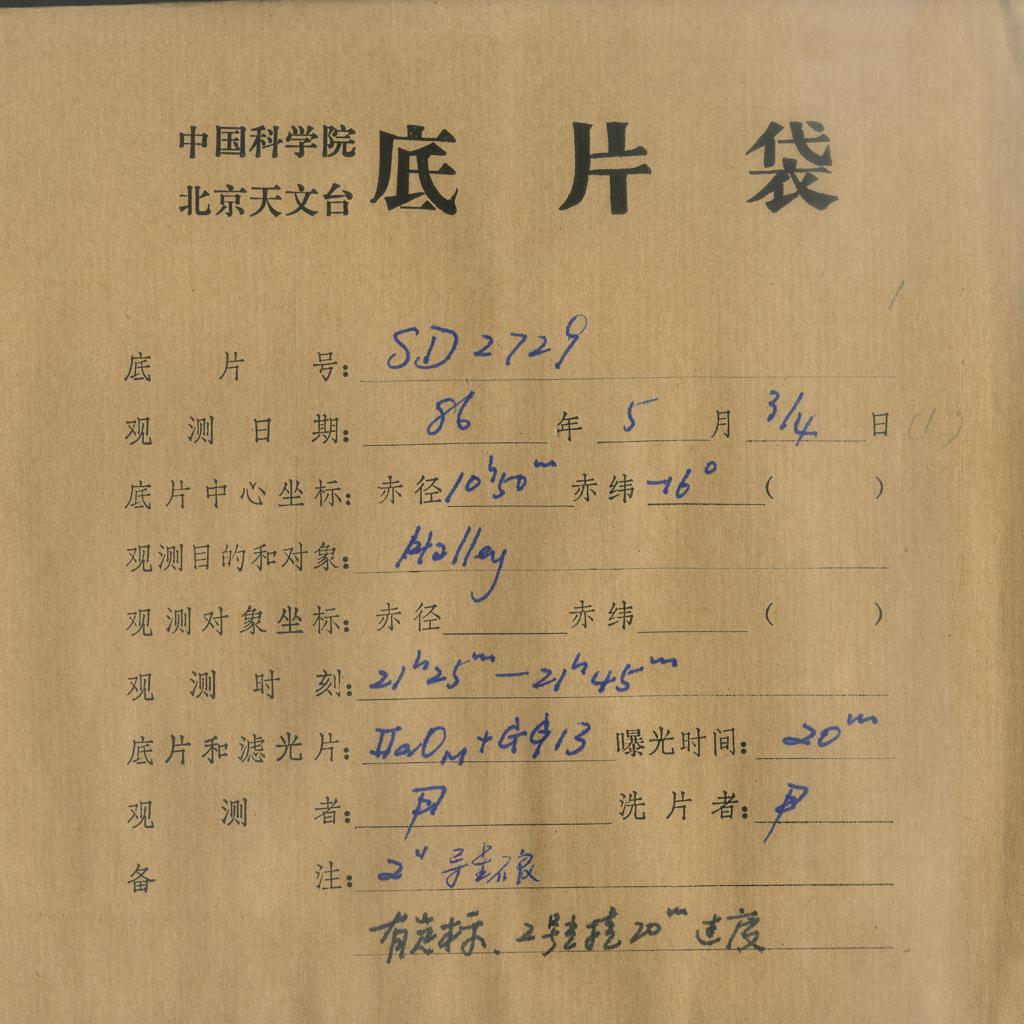 中国科学院
北京天文台 底片袋
底片号: SD2729
观测日期: 86 年 5 月 3/4 日 (1)
底片中心坐标: 赤径 10h50m 赤纬 -16° ( )
观测目的和对象: Halley
观测对象坐标: 赤径 赤纬 ( )
观测时刻: 21h25m—21h45m
底片和滤光片: IIaOM+GG13 曝光时间: 20m
观测者: 洗片者:
备注: 2" 导星不良
有 标、2号 20m 过度